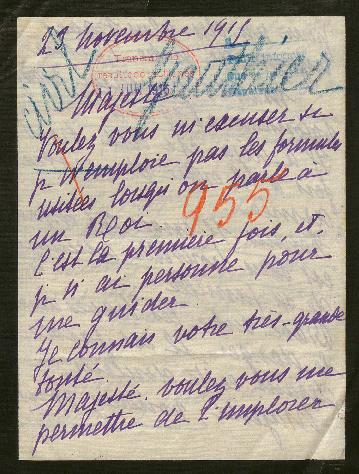 23 Novembre 1915
Gauthier
Majesté
Voulez vous m'excuser si
je n'emploie pas les formules
usitées lorsqu'on parle à
un Roi
955
C'est la première fois, et
je n'ai personne pour
me guider
Je connais votre très-grande
bonté.
Majesté. voulez vous me
permettre de l'implorer